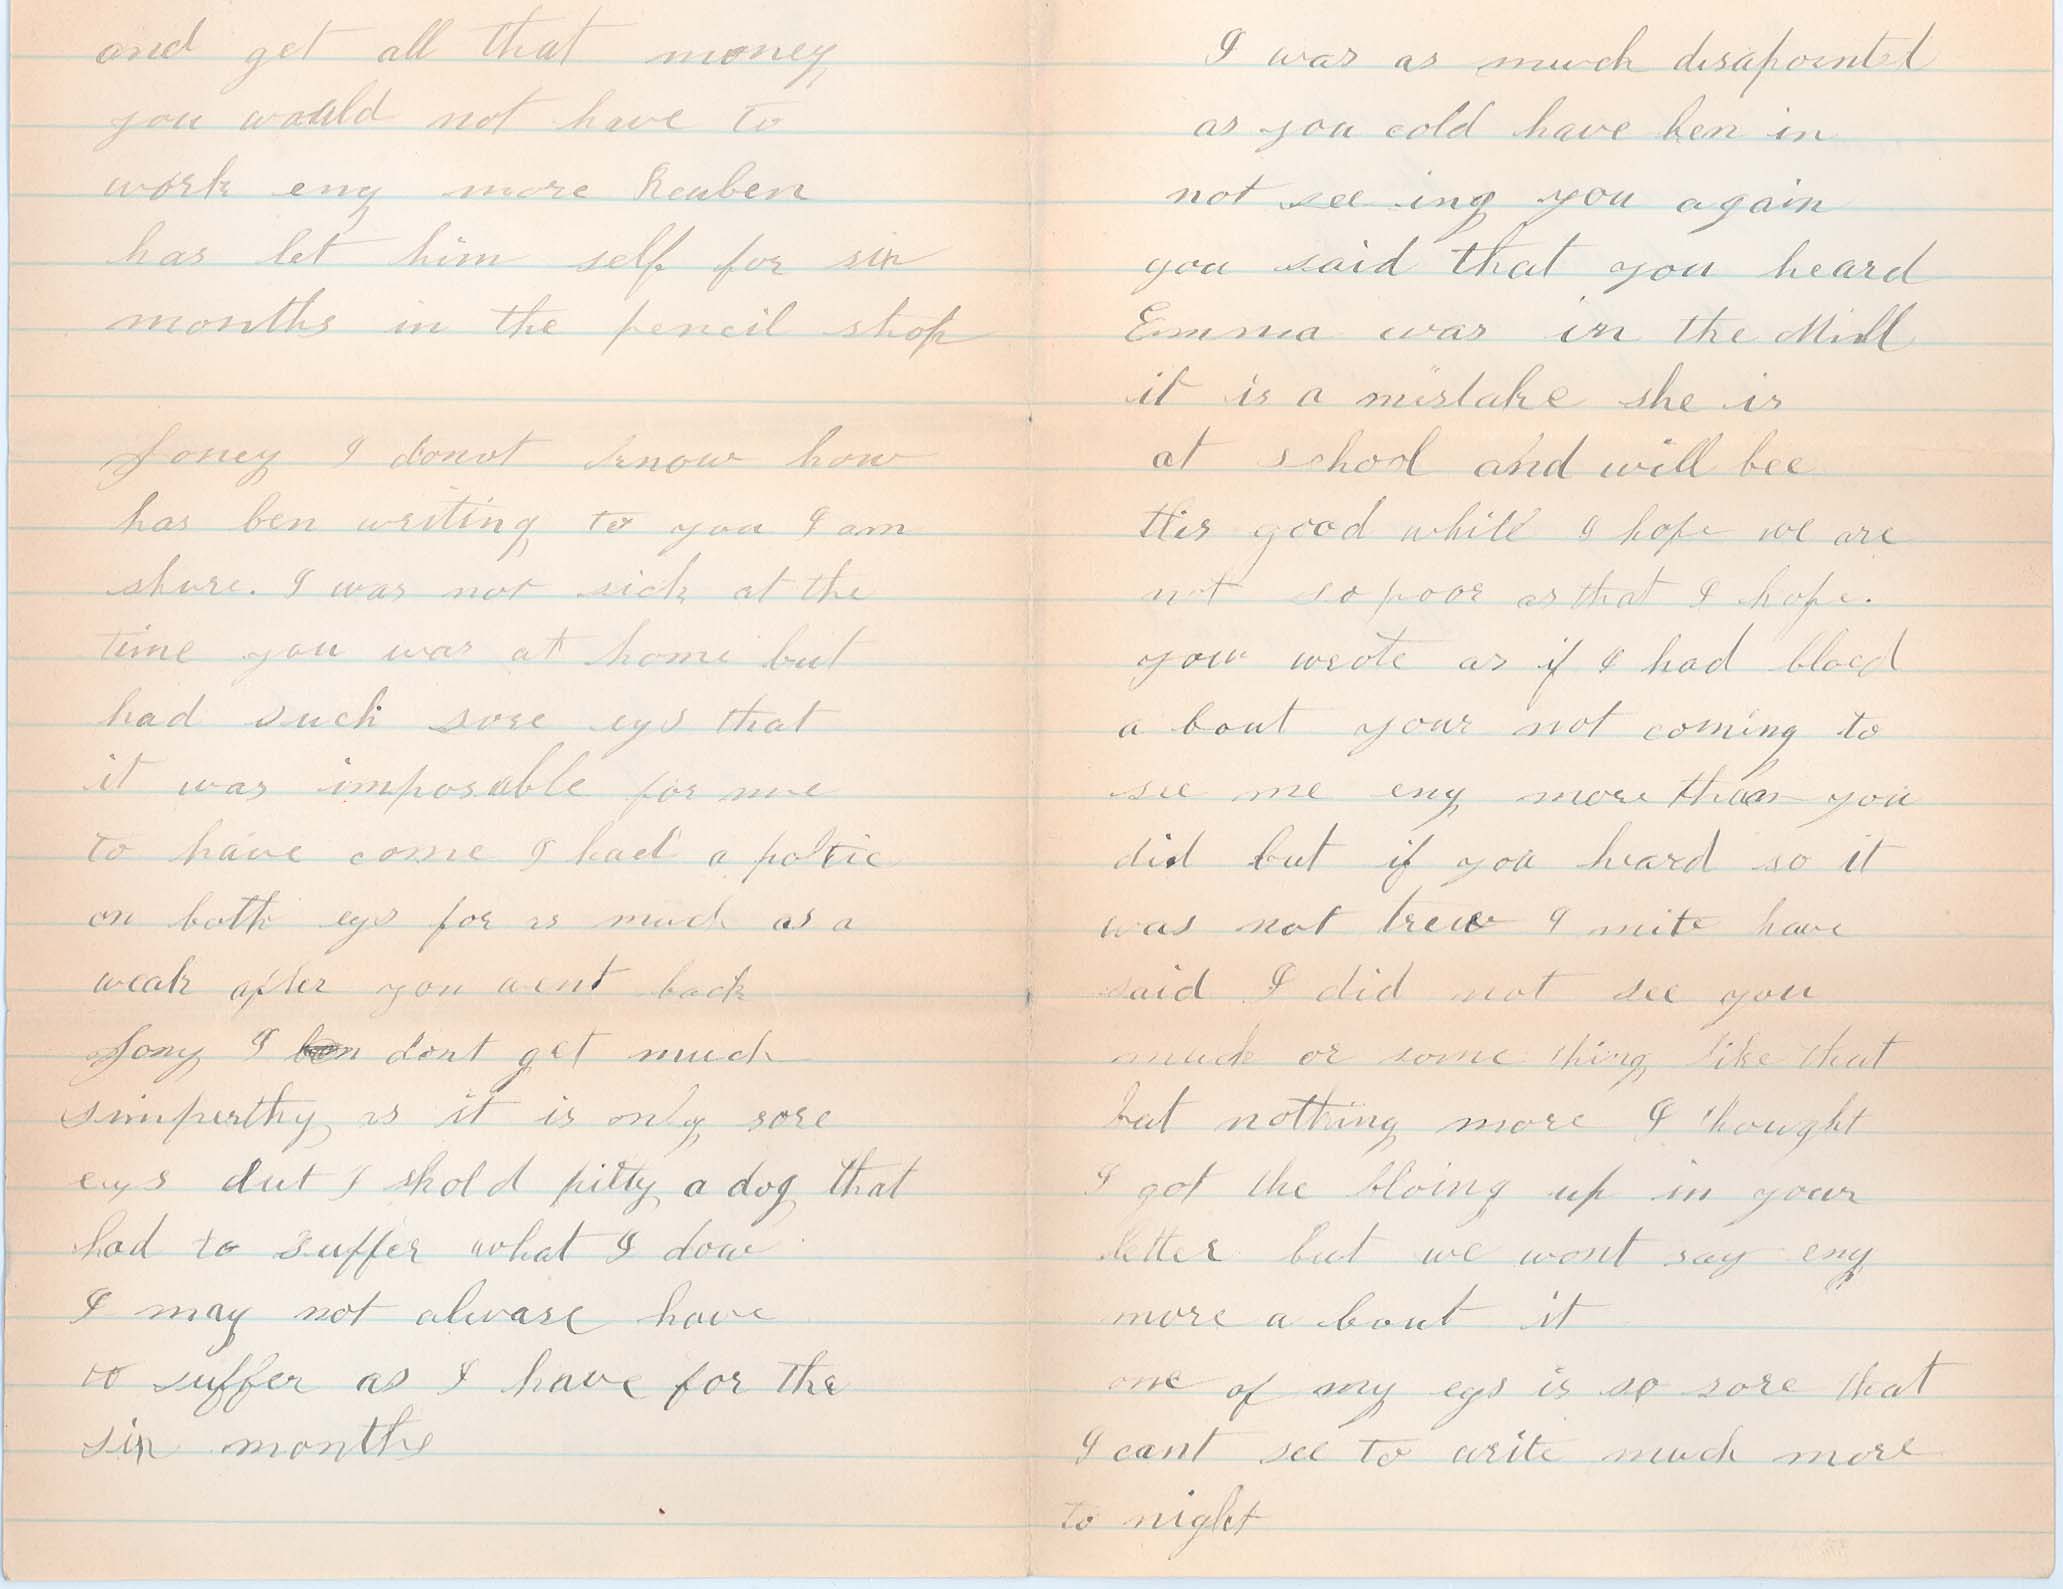 and get all that money
you would not have to
work eny more Reuben
has let him self for six
months in the pencil shop
Loney I donot know how
has ben writing to you I am
shure. I was not sick at the
time you was at home but
had such sore eys that
it was imposable for me
to have come I had a poltic
on both eys for as much as a
weak after you went back
Lony I dont get much
simperthy as it is only sore
eys but I shold pitty a dog that
had to suffer what I dow
I may not alwase have
to suffer as I have for the
six months
I was as much disapointed
as you cold have ben in
not see ing you again
you said that you heard
Emma was in the Mill
it is a mistake she is
at school and will bee
this good while I hope we are
not so poor as that I hope.
your wrote as if I had bloed
a bout your not coming to
see me eny more than you
did but if you heard so it
was not trew I mite have
said I did not see you
much or some thing like that
but nothing more I thought
I got the bloing up in your
letter but we wont say eny
more a bout it
one of my eys is so sore that
I cant see to write much more
to night